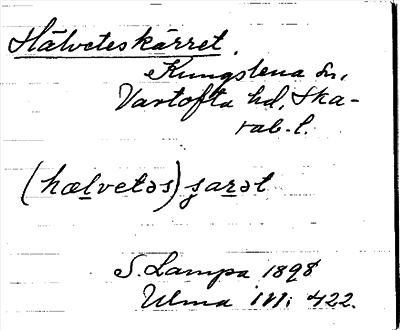 Hälveteskärret.
Kungslena sn,
Vartofta hd, Ska-
rab. l.
(hælvetəs) ʂarət
S. Lampa 1898
Ulma 111: 422.